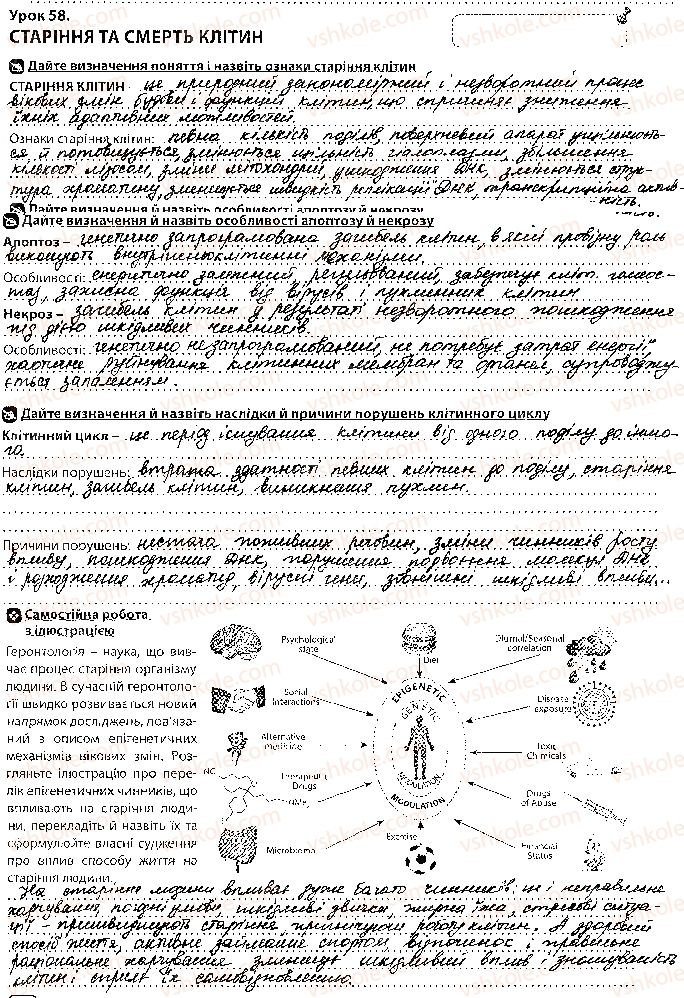 Урок 58.
СТАРІННЯ ТА СМЕРТЬ КЛІТИН
Дайте визначення поняття і назвіть ознаки старіння клітин
СТАРІННЯ КЛІТИН – це природний закономірний і незворотний процес
вікових змін будови і функцій клітин, що спричиняє зниження
їхніх адаптивних можливостей.
Ознаки старіння клітин: певна кількість поділів, поверхневий апарат ущільнюєть-
ся й потовщується, змінюється щільність гіалоплазми, збільшення
кількості лізосом, зміни мітохондрій, ушкодження ДНК, змінюється струк-
тура хроматину, зменшується швидкість реплікації ДНК, транскрипційна актив-
ність.
Дайте визначення й назвіть особливості апоптозу й некрозу
Дайте визначення й назвіть особливості апоптозу й некрозу
Апоптоз – генетично запрограмована загибель клітин, в якій провідну роль
виконують внутрішньоклітинні механізми.
Особливості: енергетично залежний, регульований, забезпечує кліт. гомеос-
таз, захисна функція від вірусів і пухлинних клітин.
Некроз – загибель клітин у результаті незворотного пошкодження
під дією шкідливих чинників.
Особливості: генетично незапрограмований, не потребує затрат енергії,
хаотичне руйнування клітинних мембран та органел, супроводжу-
ється запаленням.
Дайте визначення й назвіть наслідки й причини порушень клітинного циклу
Клітинний цикл – це період існування клітини від одного поділу до іншо-
го.
Наслідки порушень: втрата здатності певних клітин до поділу, старіння
клітин, загибель клітин, виникнення пухлин.
Причини порушень: нестача поживних речовин, зміни чинників росту
впливу, пошкодження ДНК, порушення подвоєння молекул ДНК
і розходження хроматид, вірусні гени, зовнішні шкідливі впливи...
Самостійна робота
з ілюстрацією
Геронтологія – наука, що вив-
чає процес старіння організму
людини. В сучасній геронтоло-
гії швидко розвивається новий
напрямок досліджень, пов'яза-
ний з описом епігенетичних
механізмів вікових змін. Роз-
гляньте ілюстрацію про пере-
лік епігенетичних чинників, що
впливають на старіння люди-
ни, перекладіть й назвіть їх та
сформулюйте власні судження
про вплив способу життя на
старіння людини.
Psychological
state
Diet
Diurnal/Seasonal
correlation
Social
Interactions
Disease
exposure
Alternative
medicine
Toxic
Chemicals
Therapeutic
Drugs
Drugs
of Abuse
Microbiome
Exercise
Financial
Status
EPIGENETIC
GENETIC
MODULATION
MODULATION
На старіння людини впливає дуже багато чинників: це і неправильне
харчування, погодні умови, шкідливі звички, жирна їжа, стресові ситуа-
ції – пришвидшують старіння, пригнічують роботу клітин. А здоровий
спосіб життя, активне займання спортом, відпочинок і правильне
раціональне харчування зменшує шкідливий вплив і зношуваність
клітин і сприяє їх самовідновленню.
vshkole.com